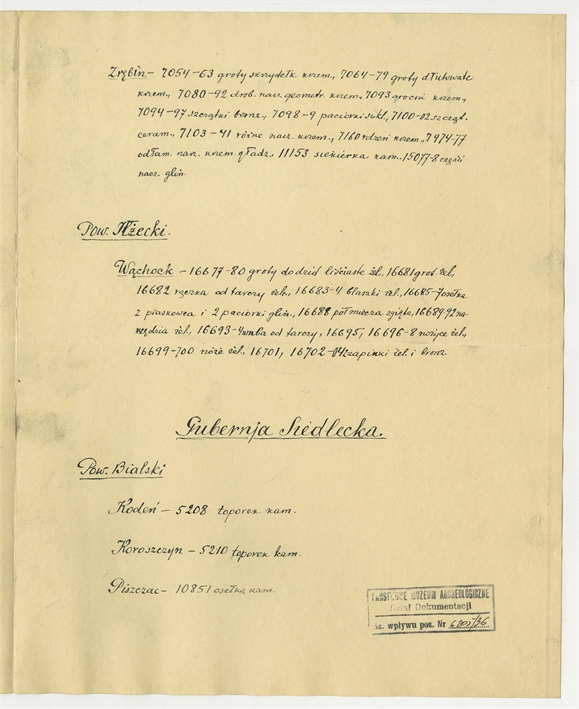 Zrębin – 7054–63 groty skrzydełk. krzem., 7064–79 groty dłutowate
krzem., 7080–92 drob. narz. geometr. krzem., 7093 grocik krzem.,
7094–97 szczątki bronz., 7098–9 paciorki szkl., 7100–02 szcząt.
ceram., 7103–41 różne narz. krzem., 7160 rdzeń krzem., 7974–77
odłam. narz. krzem. gładz., 11153 siekierka kam., 15077–8 części
nacz. glin.
Pow. Iłżecki.
Wąchock – 16677–80 groty do dzid liściaste żel., 16681 grot żel.,
16682 rączka od tarczy żel., 16683–4 blaszki żel., 16685–7 osełka
z piaskowca i 2 paciorki glin., 16688 poł miecza zgięte, 16689–92 na-
rzędzia żel., 16693–4 umba od tarczy, 16695, 16696–8 nożyce żel.,
16699–700 noże żel., 16701, 16702–04 zapinki żel. i bronz.
Gubernja Siedlecka.
Pow. Bialski
Kodeń – 5208 toporek kam.
Koroszczyn – 5210 toporek kam.
Piszczac – 10851 osełka kam.
PAŃSTWOWE MUZEUM ARCHEOLOGICZNE
Dział Dokumentacji
Ks. wpływu poz. Nr